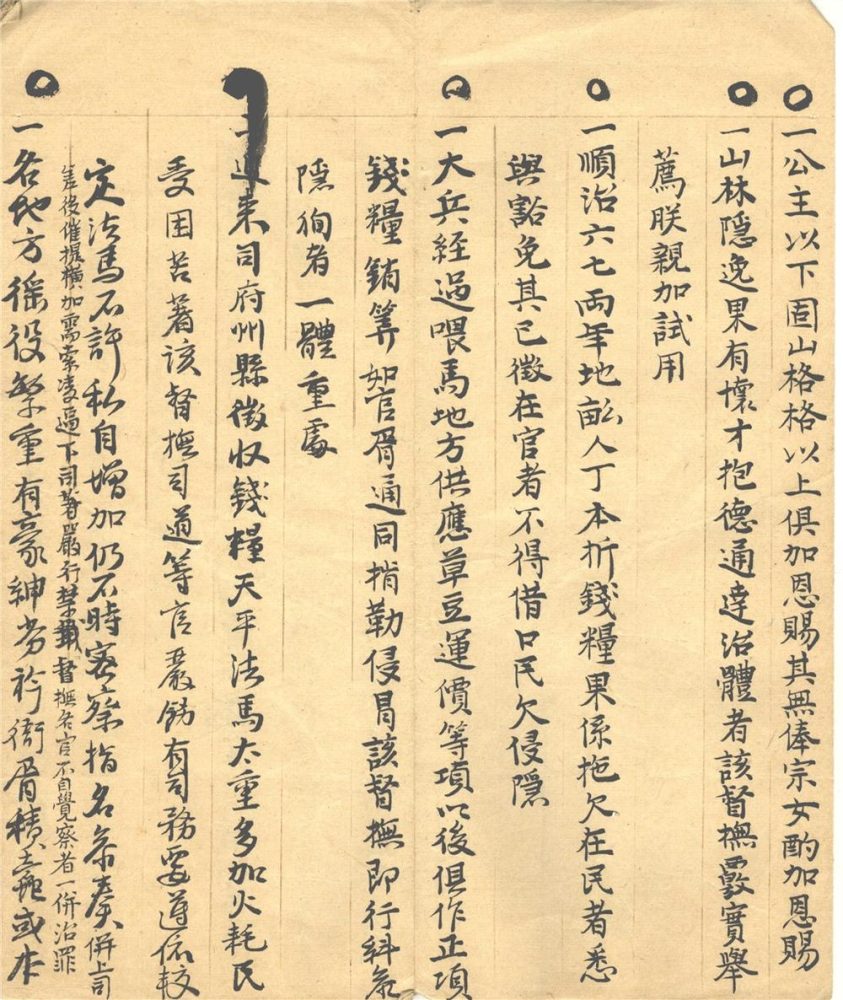 一公主以下固山格格以上俱加恩賜其無俸宗女酌加恩賜
一山林隱逸果有懷才抱德通達治體者該督撫覈實舉
薦朕親加試用
一順治六七兩年地畝人丁本折錢糧果係拖欠在民者悉
與豁免其已徵在官者不得借口民欠侵隱
一大兵經過喂馬地方供應草豆運價等項以後俱作正項
錢糧銷筭如官胥通同掯勒侵冒該督撫即行糾叅
隱徇者一體重處
一近来司府州縣徵収錢糧天平法馬太重多加火耗民
受困苦著該督撫司道等官嚴飭有司務要遵依較
定法馬不許私自增加仍不時密察指名叅奏併上司
差役催提橫加需索凌逼下司著嚴行禁戢督撫各官不自覺察者一併治罪
一各地方徭役繁重有豪紳劣衿衙胥積蠹或本